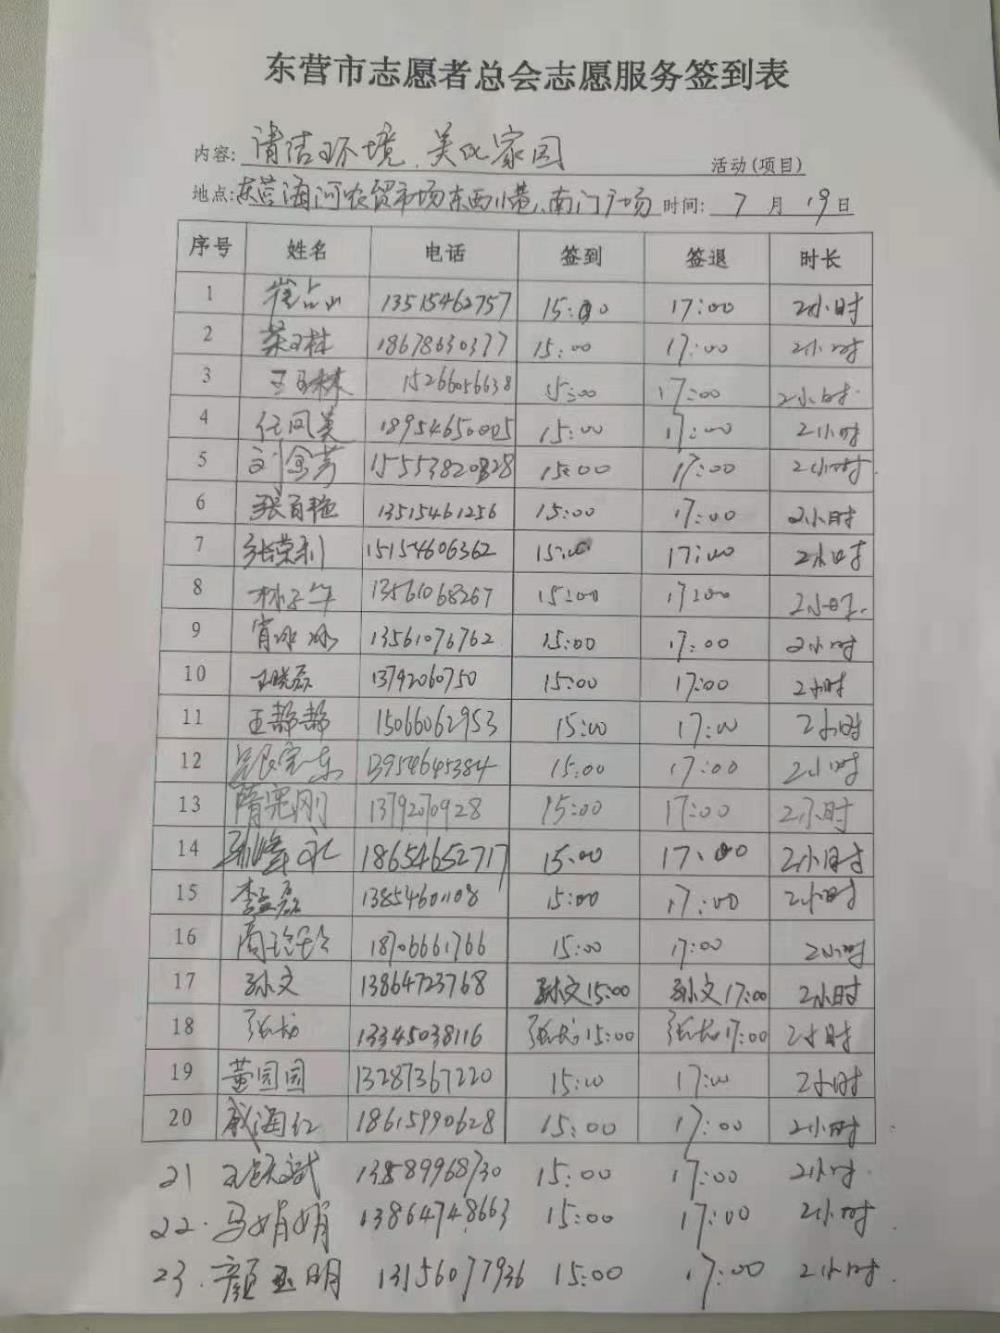 东营市志愿者总会志愿服务签到表
内容: 清洁环境、美化家园 活动(项目)
地点: 东营海河农贸市场东西小巷、南门广场 时间: 7 月 19 日
序号 姓名 电话 签到 签退 时长
1 崔占山 13515462757 15:00 17:00 2小时
2 18678630377 15:00 17:00 2小时
3 王玉林 15266056638 15:00 17:00 2小时
4 任凤美 18954650005 15:00 17:00 2小时
5 刘金芳 15553820828 15:00 17:00 2小时
6 张百艳 13515461256 15:00 17:00 2小时
7 张荣利 15154606362 15:00 17:00 2小时
8 13561068267 15:00 17:00 2小时
9 肖冰冰 13561076762 15:00 17:00 2小时
10 王晓磊 13792060750 15:00 17:00 2小时
11 王静静 15066062953 15:00 17:00 2小时
12 13954645384 15:00 17:00 2小时
13 隋宪刚 13792070928 15:00 17:00 2小时
14 18654652717 15:00 17:00 2小时
15 李孟磊 13854601108 15:00 17:00 2小时
16 周玲玲 18706661766 15:00 17:00 2小时
17 孙文 13864723768 孙文 15:00 孙文 17:00 2小时
18 张龙 13345038116 张龙 15:00 张龙 17:00 2小时
19 董园园 13287367220 15:00 17:00 2小时
20 戚海红 18615990628 15:00 17:00 2小时
21 13589968730 15:00 17:00 2小时
22. 马娟娟 13864748663 15:00 17:00 2小时
23. 颜玉明 13156077936 15:00 17:00 2小时